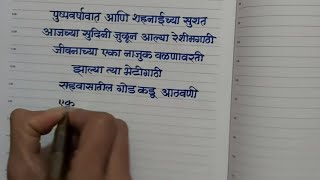 पुष्पवर्षावात आणि शहनाईच्या सुरात
आजच्या सुदिनी जुळून आल्या रेशीमगाठी
जीवनाच्या एका नाजुक वळणावरती
झाल्या त्या भेटीगाठी
सहवासातील गोड कडू आठवणी
एक